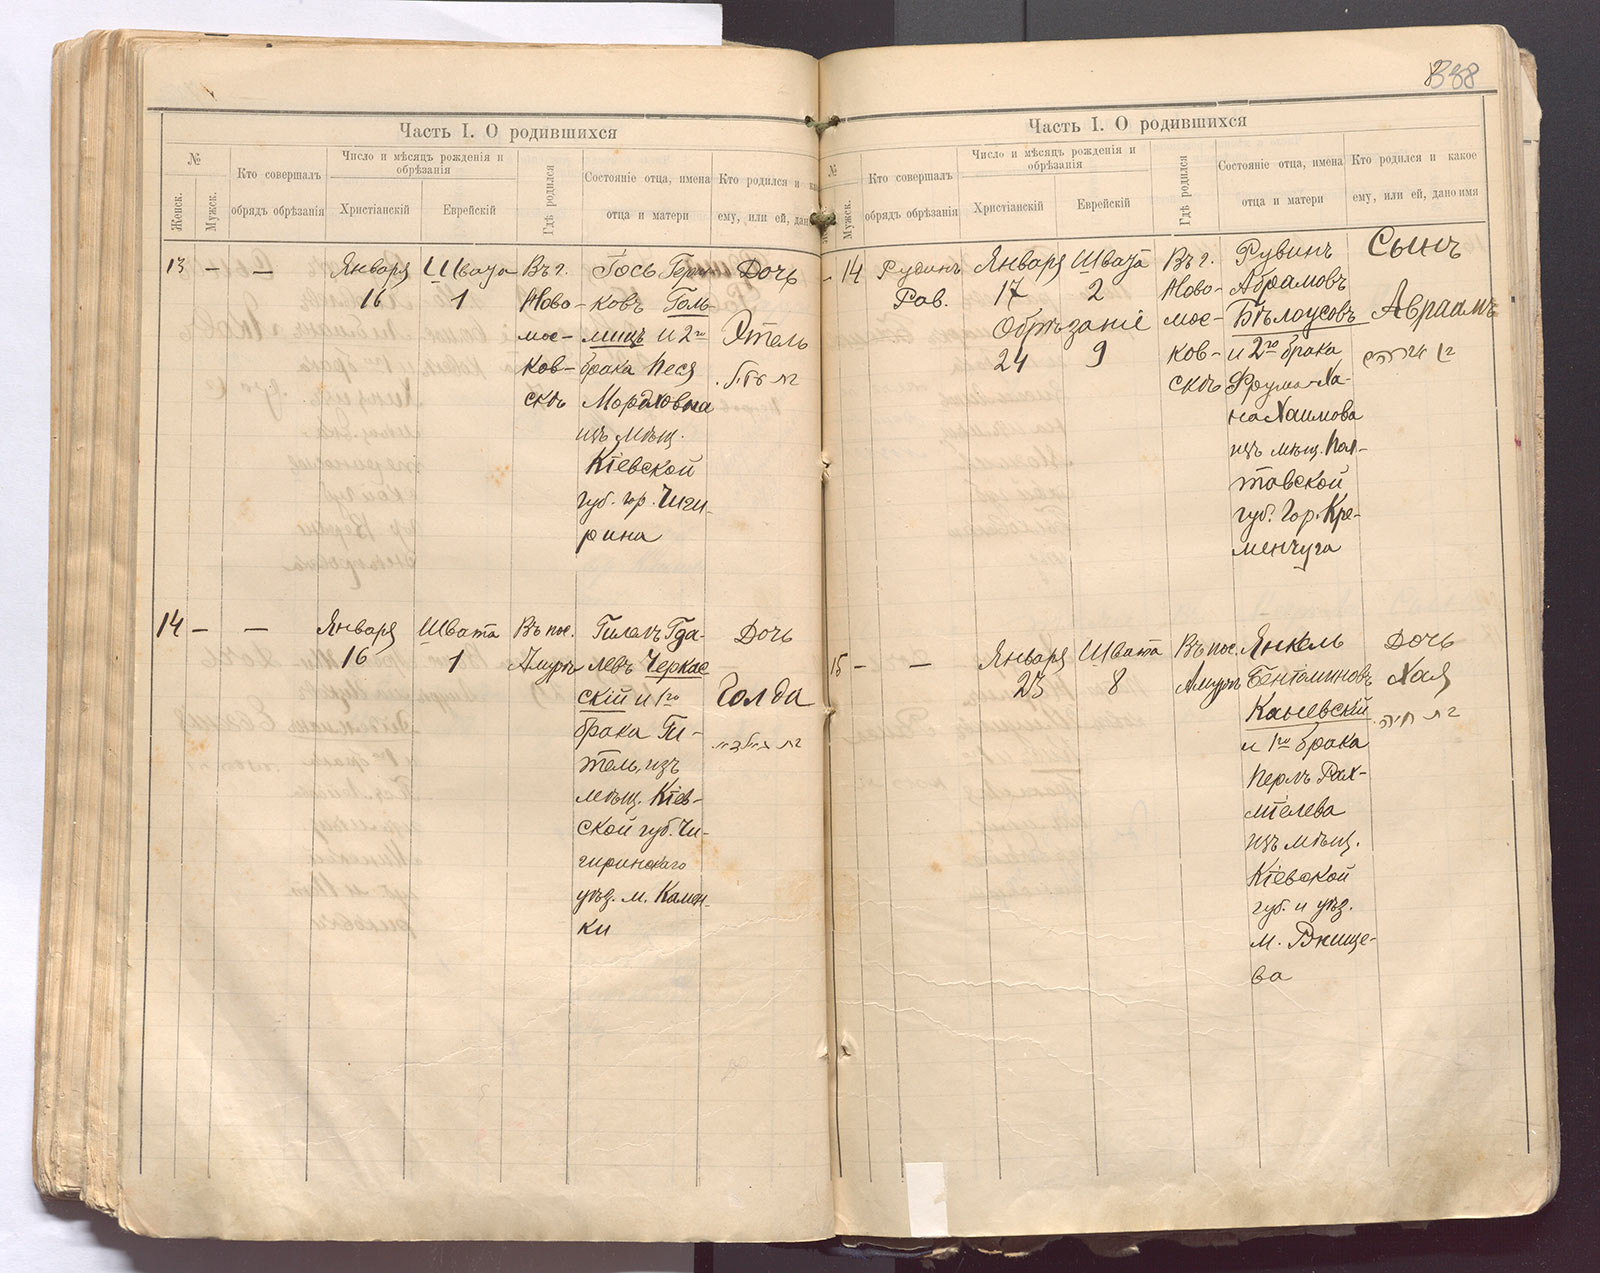 Часть I. О родившихся
№
Женск.
Мужск.
Кто совершалъ
обрядъ обрѣзанія
Число и мѣсяцъ рожденія и
обрѣзанія
Христіанскій
Еврейскій
Гдѣ родился
Состояніе отца, имена
отца и матери
Кто родился и
ему, или ей, дано
13 — — Января Швата Въ г.
16 1 Ново-
мос-
ков-
скъ
Гось Герш-
ковъ Голь-
мицъ и 2го
брака Песя
Мордковна
изъ мѣщ.
Кіевской
губ. гор. Чиги-
рина
Дочь
Этель
14 — — Января Швата Въ пос.
16 1 Амуръ
Гилелъ Гда-
левъ Черкас
скій и 1го
брака Ги-
тель, изъ
мѣщ. Кіев-
ской губ. Чи-
гиринскаго
уѣз. м. Камен-
ки
Дочь
Голда
338
Часть I. О родившихся
№
Мужск.
Кто совершалъ
обрядъ обрѣзанія
Число и мѣсяцъ рожденія и
обрѣзанія
Христіанскій
Еврейскій
Гдѣ родился
Состояніе отца, имена
отца и матери
Кто родился и какое
ему, или ей, дано имя
- 14 Рувинъ Января Швата Въ г.
Рав. 17 2 Ново-
Обрѣзаніе мос-
24 9 ков-
скъ
Рувинъ
Абрамовъ
Бѣлоусовъ
и 2го брака
Фрума-Ха-
на Хаимова
изъ мѣщ. Пол-
тавской
губ. Гор. Кре-
менчуга
Сынъ
Авраамъ
15 — — Января Швата Въ пос.
23 8 Амуръ
Янкель
Бенiоминовъ
Каневскій
и 1го брака
Перлъ Рах-
міелева
изъ мѣщ.
Кіевской
губ. и уѣз.
м. Ржище-
ва
Дочь
Хая